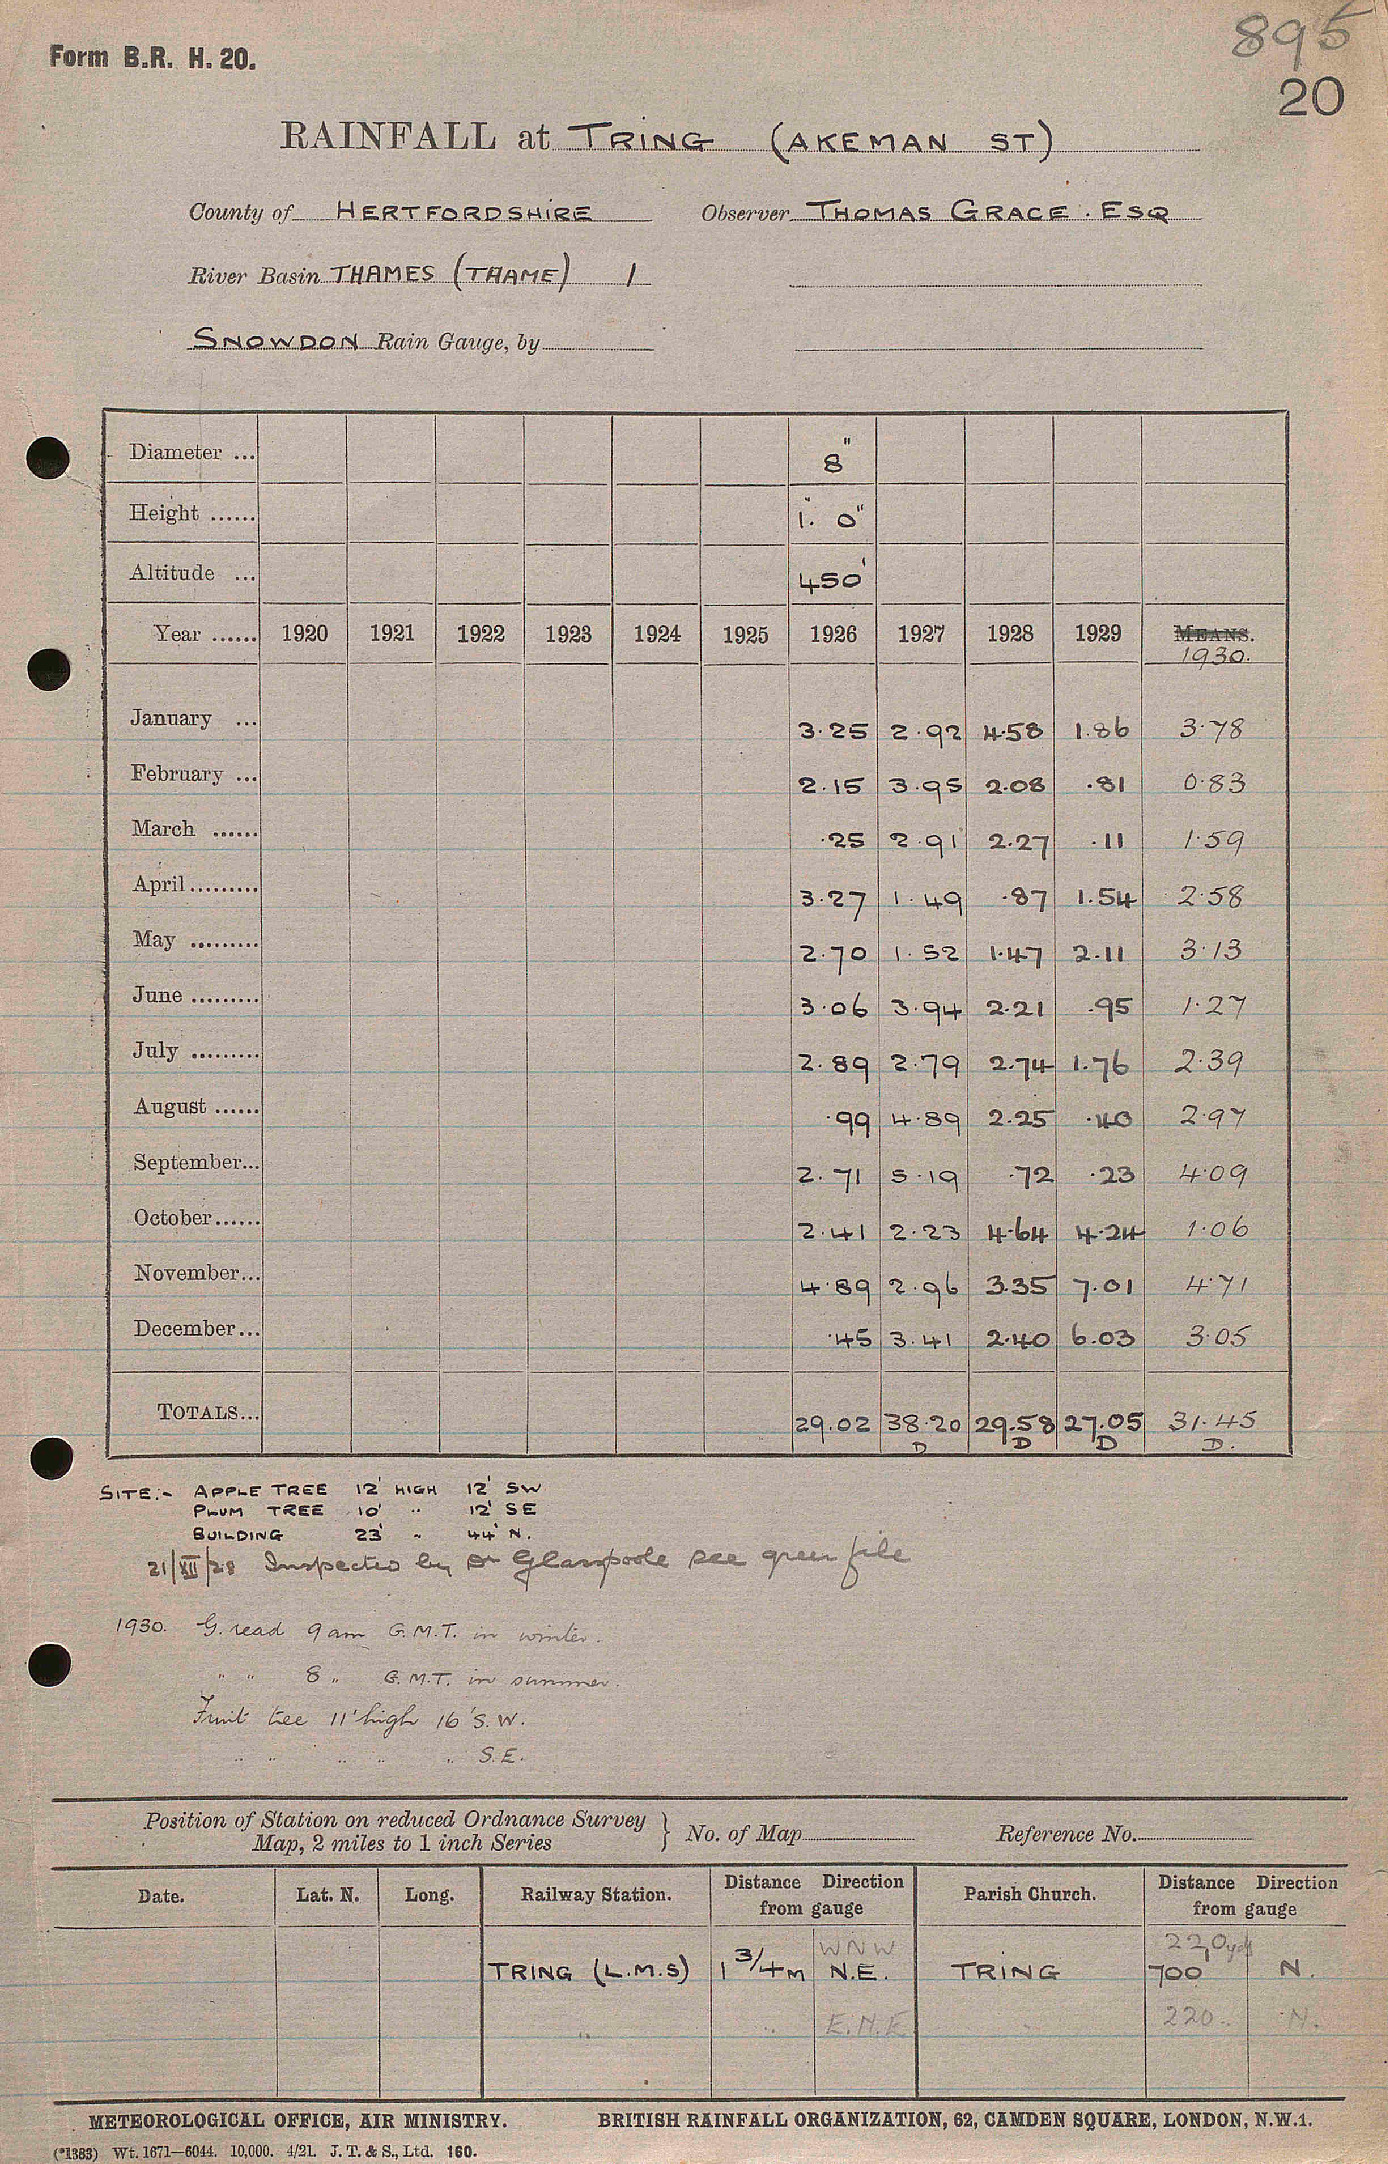 895
Form B.R. H. 20.
20
RAINFALL at TRING (AKEMAN ST)
County of HERTFORDSHIRE Observer THOMAS GRACE. ESQ
River Basin THAMES (THAME) 1
SNOWDON Rain Gauge, by
Diameter ... 8"
Height ...... 1'. 0"
Altitude ... 450'
Year ...... 1920 1921 1922 1923 1924 1925 1926 1927 1928 1929 MEANS.
1930.
January ... 3.25 2.92 4.58 1.86 3.78
February ... 2.15 3.95 2.08 .81 0.83
March ...... .25 2.91 2.27 .11 1.59
April ......... 3.27 1.49 .87 1.54 2.58
May ......... 2.70 1.52 1.47 2.11 3.13
June ......... 3.06 3.94 2.21 .95 1.27
July ......... 2.89 2.79 2.74 1.76 2.39
August ...... .99 4.89 2.25 .40 2.97
September... 2.71 5.19 .72 .23 4.09
October ...... 2.41 2.23 4.64 4.24 1.06
November... 4.89 2.96 3.35 7.01 4.71
December... .45 3.41 2.40 6.03 3.05
TOTALS... 29.02 38.20 29.58 27.05 31.45
D D D D.
SITE:- APPLE TREE 12' HIGH 12' SW
PLUM TREE 10' " 12' SE
BUILDING 23' " 44' N.
21/XII/28 Inspected by Dr Glasspoole see green file
1930. G. read 9 am G.M.T. in winter.
" " 8 " G.M.T. in summer.
Fruit tree 11' high 16' S.W.
" " " " " S.E.
Position of Station on reduced Ordnance Survey
Map, 2 miles to 1 inch Series } No. of Map Reference No.
Date. Lat. N. Long. Railway Station. Distance Direction from gauge Parish Church. Distance Direction from gauge
WNW 220 yds
TRING (L.M.S) 1 3/4 m N.E. TRING 700 N.
" " E.N.E " 220 " N.
METEOROLOGICAL OFFICE, AIR MINISTRY. BRITISH RAINFALL ORGANIZATION, 62, CAMDEN SQUARE, LONDON, N.W.1.
(*1383) Wt. 1671—6044. 10,000. 4/21. J. T. & S., Ltd. 160.